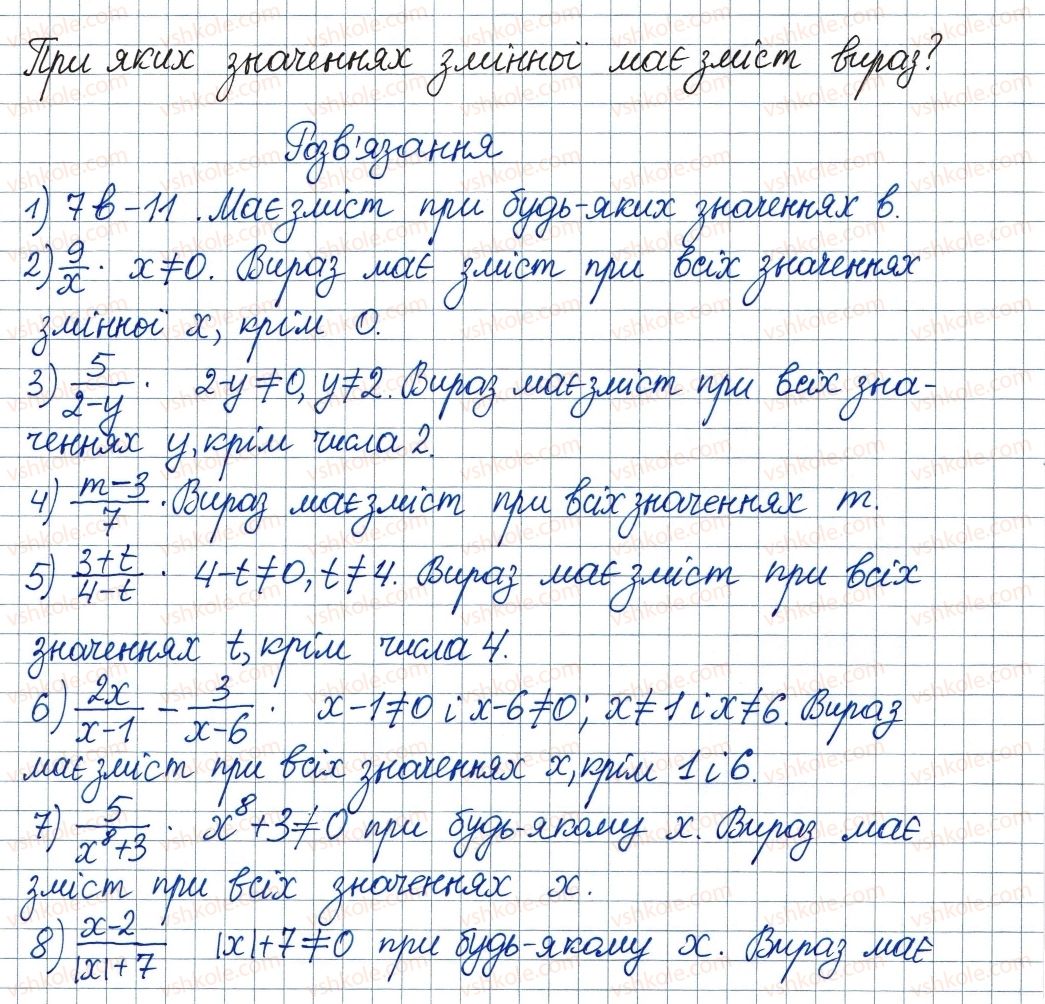 При яких значеннях змінної має зміст вираз?
Розв'язання
1) 7b-11. Має зміст при будь-яких значеннях b.
2) 9/x. x≠0. Вираз має зміст при всіх значеннях
змінної x, крім 0.
3) 5/(2-y). 2-y≠0, y≠2. Вираз має зміст при всіх зна-
ченнях y, крім числа 2.
4) (m-3)/7. Вираз має зміст при всіх значеннях m.
5) (3+t)/(4-t). 4-t≠0, t≠4. Вираз має зміст при всіх
значеннях t, крім числа 4.
6) 2x/(x-1) - 3/(x-6). x-1≠0 і x-6≠0; x≠1 і x≠6. Вираз
має зміст при всіх значеннях x, крім 1 і 6.
7) 5/(x⁸+3). x⁸+3≠0 при будь-якому x. Вираз має
зміст при всіх значеннях x.
8) (x-2)/(|x|+7) |x|+7≠0 при будь-якому x. Вираз має